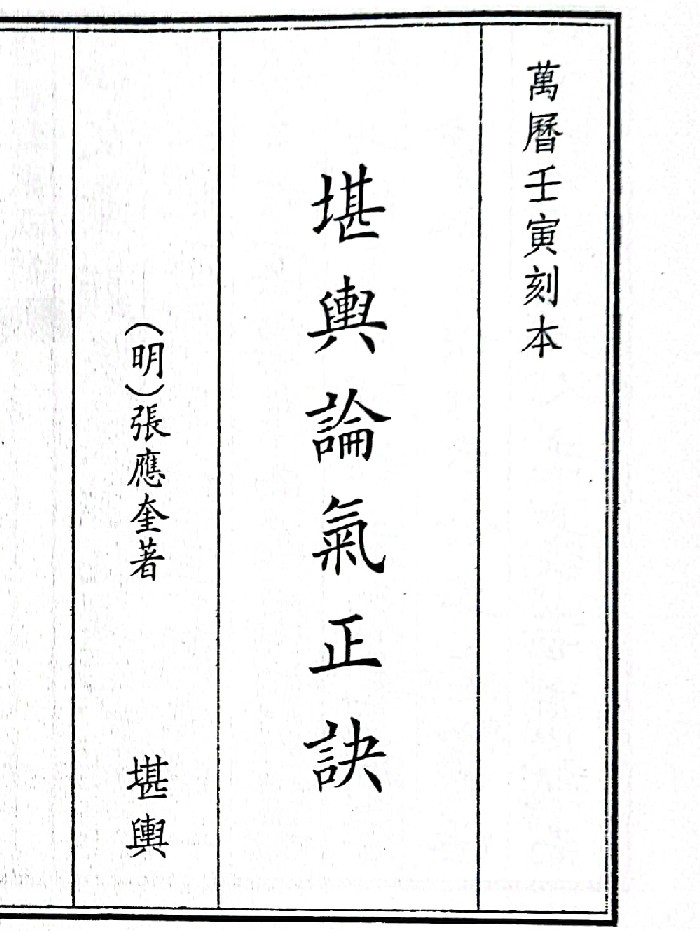 萬曆壬寅刻本
堪輿論氣正訣
（明）張應奎著 堪輿